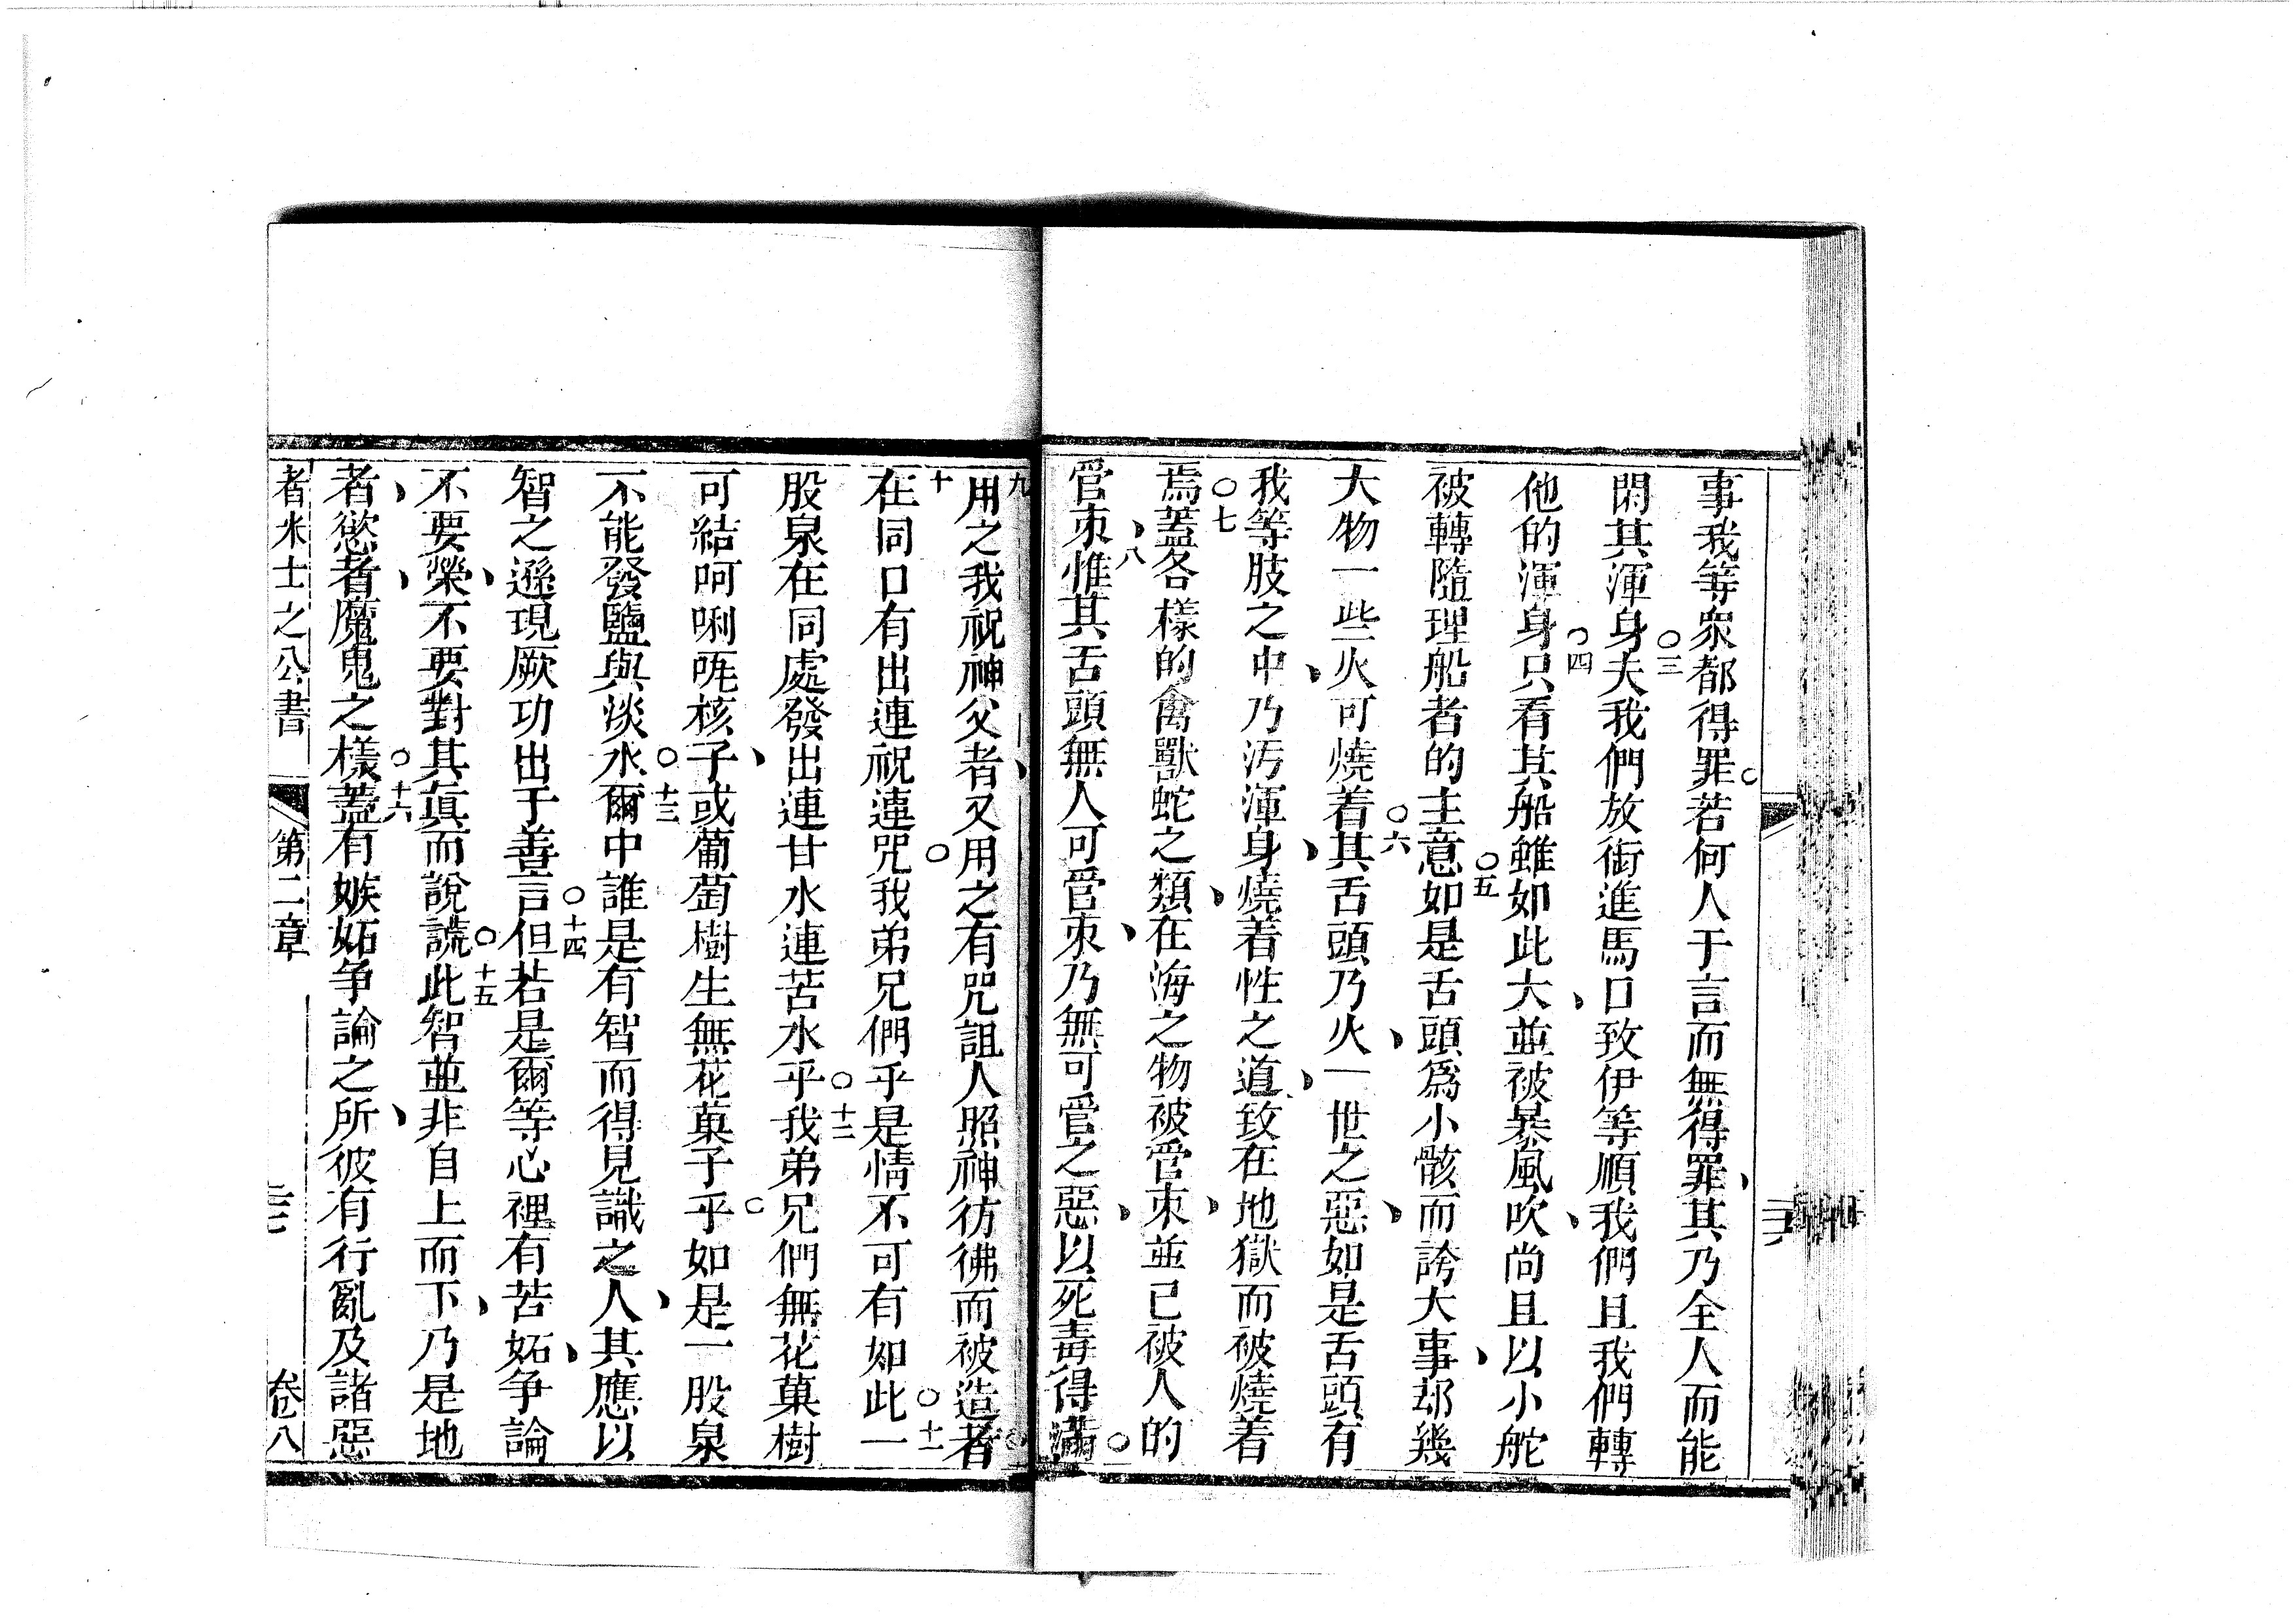 事我等衆都得罪。若何人于言而無得罪、其乃全人而能
閑其渾身○三夫我們放銜進馬口致伊等順我們且我們轉
他的渾身○四只看其船雖如此大、並被暴風吹、尚且以小舵
被轉隨理船者的主意○五如是舌頭爲小骸而誇大事、却幾
大物一些火可燒着○六其舌頭乃火、一世之惡、如是舌頭有
我等肢之中、乃汚渾身、燒着性之道、致在地獄而被燒着
焉○七蓋各樣的禽獸蛇之類、在海之物被管束、並已被人的
管束、八惟其舌頭無人可管束、乃無可管之惡、以死毒得滿○
九用之我祝神父者、又用之有咒詛人照神彷彿而被造者○
十在同口有出連祝連咒。我弟兄們乎是情不可有如此○十一一
股泉在同處發出連甘水連苦水乎○十二我弟兄們無花菓樹
可結呵唎哌核子、或葡萄樹生無花菓子乎。如是一股泉
不能發鹽與淡水○十三爾中誰是有智而得見識之人、其應以
智之遜現厥功出于善言○十四但若是爾等心裡有苦妬、争論
不要榮、不要對其真而說謊○十五此智並非自上而下、乃是地
者、慾者、魔鬼之樣○十六蓋有嫉妬争論之所、彼有行亂及諸惡
者米士之公書 第二章 卷八